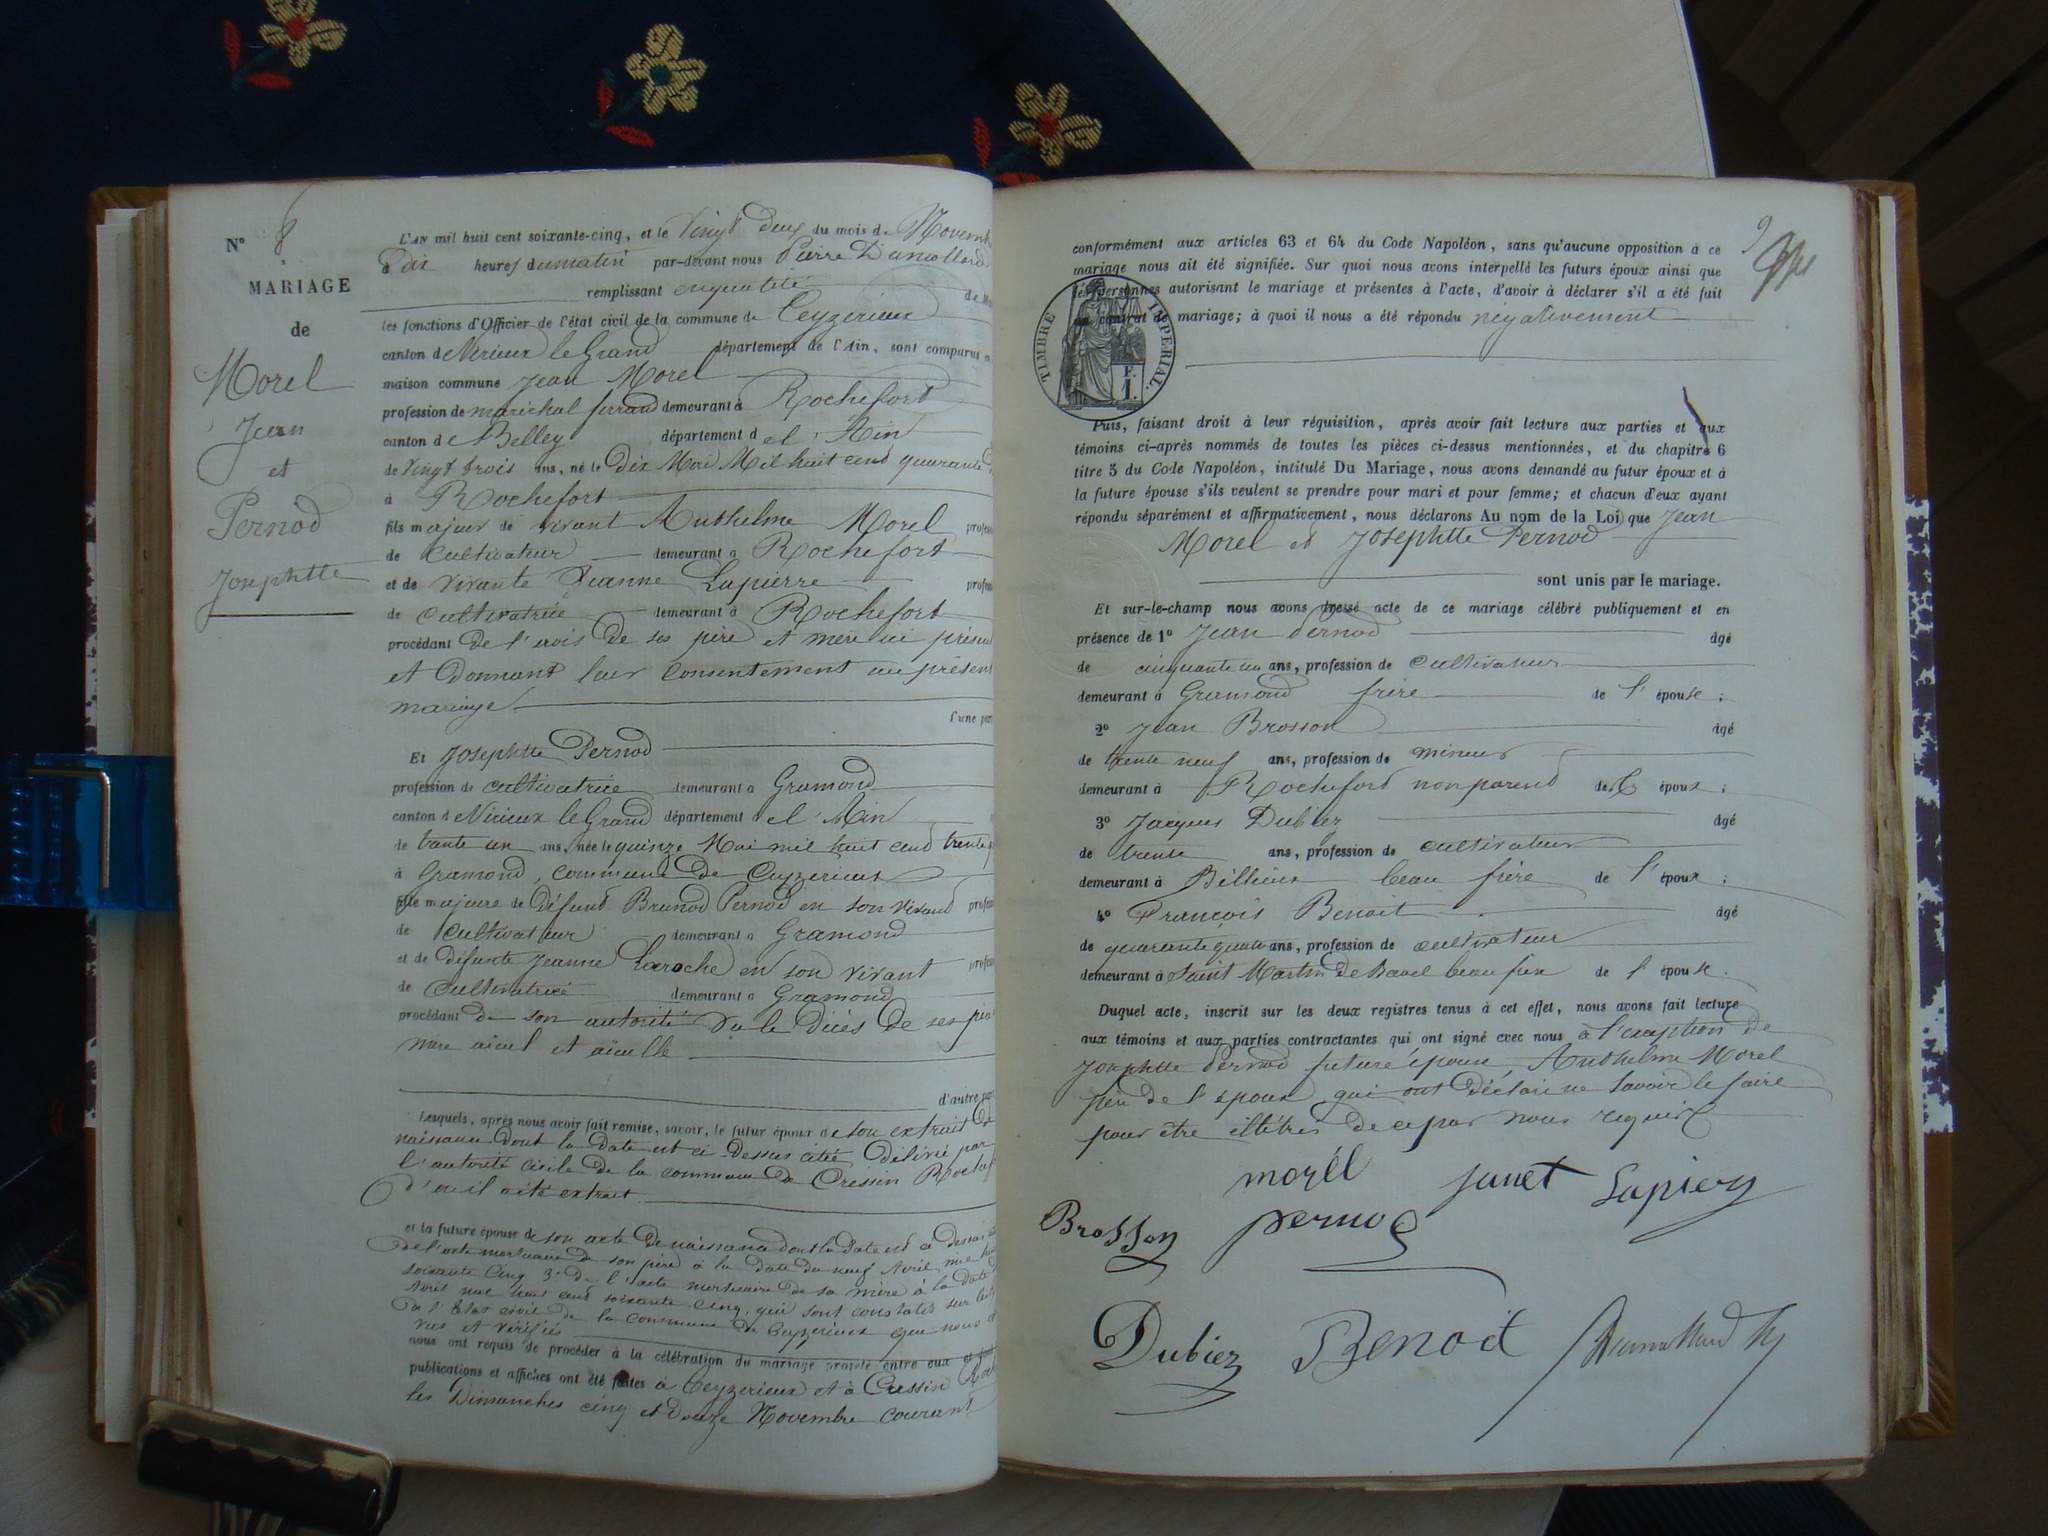 N° 8
MARIAGE
de
Morel
Jean
et
Pernod
Josephtte
L'AN mil huit cent soixante-cinq, et le vingt deux du mois de Novemb
à dix heures du matin par-devant nous Pierre Dumollard
remplissant en qualité de M
les fonctions d'Officier de l'état civil de la commune de Ceyzerieux
canton de Virieux le Grand département de l'Ain, sont comparus e
maison commune Jean Morel
profession de maréchal ferrand demeurant à Rochefort
canton de Belley département de l'Ain
de vingt trois ans, né le dix Mai Mil huit cend quarante
à Rochefort
fils majeur de vivant Anthelme Morel profess
de cultivateur demeurant à Rochefort
et de vivante Jeanne Lapierre profess
de cultivatrice demeurant à Rochefort
procédant de l'avis de ses père et mère ici présen
et donnant leur consentement au présent
mariage
l'une par
Et Josephtte Pernod
profession de cultivatrice demeurant à Gramond
canton de Virieux le Grand département de l'Ain
de trente un ans, née le quinze Mai mil huit cend trente
à Gramond, commune de Ceyzerieux
fille majeure de défund Brunod Pernod en son vivand profess
de cultivateur demeurant à Gramond
et de défunte Jeanne Laroche en son vivant profess
de cultivatrice demeurant à Gramond
procédant de son autorité vu le décès de ses père
mère aieul et aieulle
d'autre par
Lesquels, après nous avoir fait remise, savoir, le futur époux de son extrait de
naissance dont la date est ci-dessus citée, délivré par
l'autorité civile de la commune de Cressin Rochef
d'où il a été extrait
et la future épouse de son acte de naissance dont la date est ci dessus
de l'acte mortuaire de son père à la date du neuf Avril mil hu
soixante cinq 3° de l'acte mortuaire de sa mère à la date
Avril mil huit cend soixante cinq, qui sont constatés sur les
de l'état civil de la commune de Ceyzerieux que nous
vus et vérifiés
nous ont requis de procéder à la célébration du mariage projeté entre eux et dont
publications et affiches ont été faites à Ceyzerieux et à Cressin Roch
les Dimanches cinq et douze Novembre courant
9
conformément aux articles 63 et 64 du Code Napoléon, sans qu'aucune opposition à ce
mariage nous ait été signifiée. Sur quoi nous avons interpellé les futurs époux ainsi que
les personnes autorisant le mariage et présentes à l'acte, d'avoir à déclarer s'il a été fait
un contrat de mariage; à quoi il nous a été répondu négativement
TIMBRE IMPERIAL.
F.
1.
Puis, faisant droit à leur réquisition, après avoir fait lecture aux parties et aux
témoins ci-après nommés de toutes les pièces ci-dessus mentionnées, et du chapitre 6
titre 5 du Code Napoléon, intitulé Du Mariage, nous avons demandé au futur époux et à
la future épouse s'ils veulent se prendre pour mari et pour femme; et chacun d'eux ayant
répondu séparément et affirmativement, nous déclarons Au nom de la Loi que Jean
Morel et Josephtte Pernod
sont unis par le mariage.
Et sur-le-champ nous avons dressé acte de ce mariage célébré publiquement et en
présence de 1° Jean Pernod âgé
de cinquante un ans, profession de cultivateur
demeurant à Gramond frère de l'épouse;
2° Jean Brosson âgé
de trente neuf ans, profession de mineur
demeurant à Rocheford non parend de l'époux;
3° Jacques Dubiez âgé
de trente ans, profession de cultivateur
demeurant à Billieux beau frère de l'époux;
4° François Benoit âgé
de quarante quatre ans, profession de cultivateur
demeurant à Saint Martin de Bavel beau frère de l'épouse.
Duquel acte, inscrit sur les deux registres tenus à cet effet, nous avons fait lecture
aux témoins et aux parties contractantes qui ont signé avec nous à l'exception de
Josephtte Pernod future épouse, Anthelme Morel
père de l'époux qui ont déclaré ne savoir le faire
pour être illétrés de ce par nous requis
morel Janet Lapierr
Brosson pernod
Dubiez Benoit Dumollard